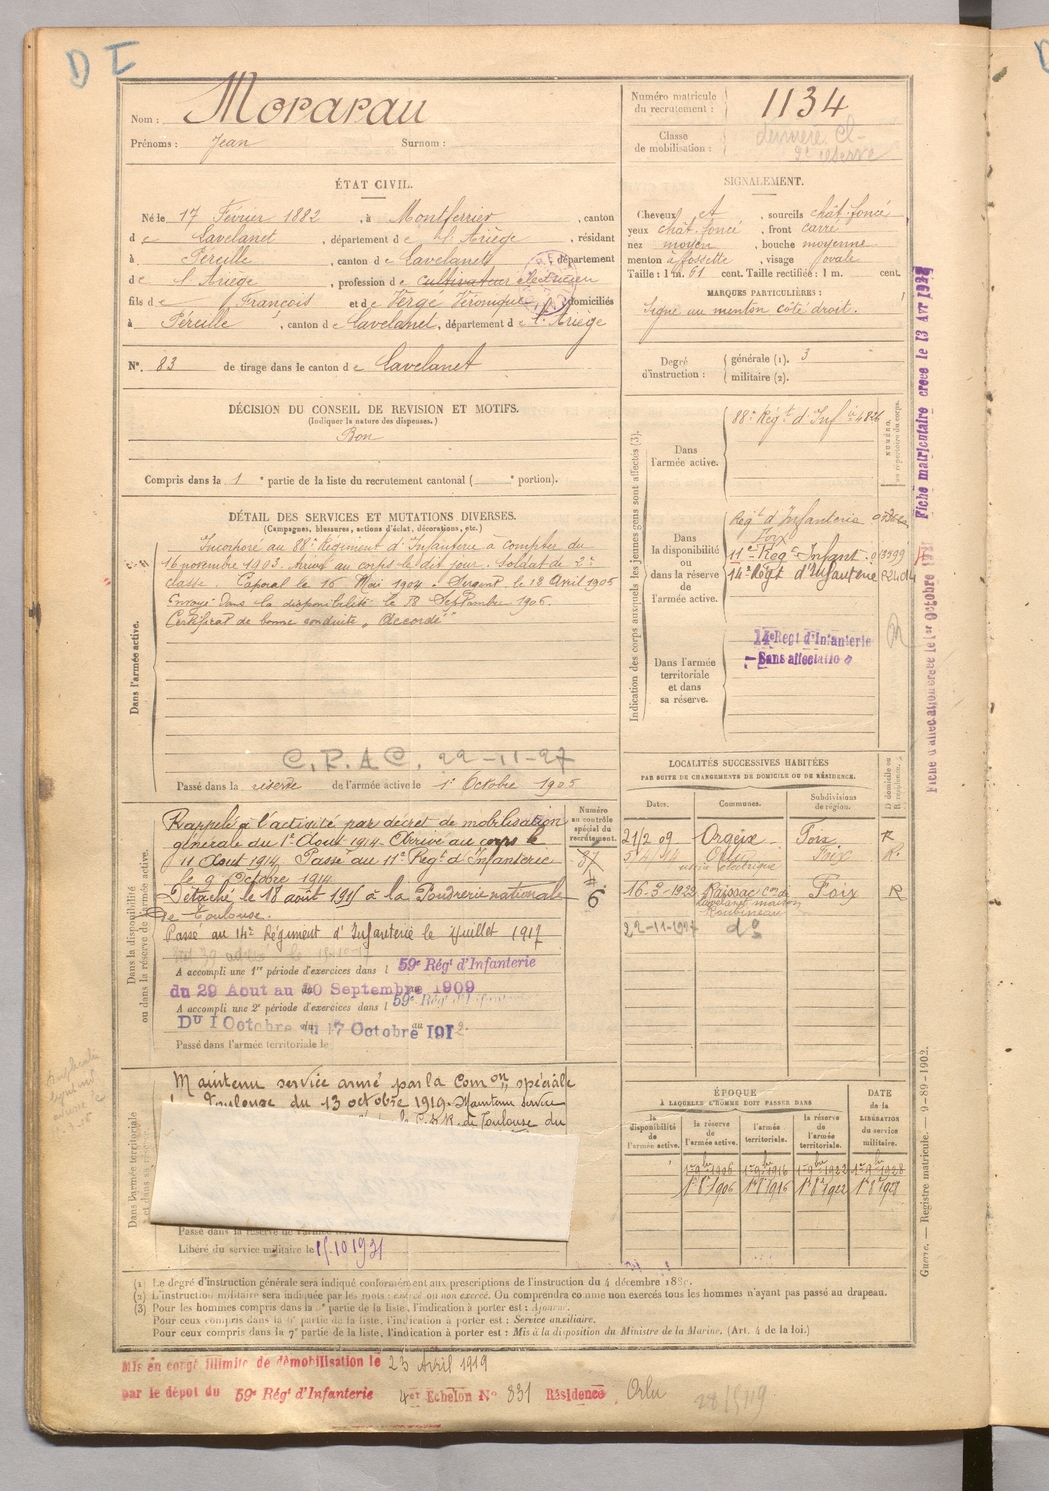 D I
Nom : Morarau
Prénoms : Jean Surnom :
Numéro matricule du recrutement : 1134
Classe de mobilisation : dernière Cl
2e réserve
ÉTAT CIVIL.
Né le 17 Février 1882, à Montferrier, canton
de Lavelanet, département de l'Ariège, résidant
à Péreille, canton de Lavelanet, département
de l'Ariège, profession de cultivateur électricien
fils de François et de Vergé Véronique, domiciliés
à Péreille, canton de Lavelanet, département de l'Ariège
N°. 83 de tirage dans le canton de Lavelanet
SIGNALEMENT.
Cheveux et, sourcils chât. foncé
yeux chât. foncé, front carré
nez moyen, bouche moyenne
menton à fossette, visage ovale
Taille : 1 m. 61 cent. Taille rectifiée : 1 m. cent.
MARQUES PARTICULIÈRES :
Signe au menton côté droit.
Degré d'instruction : générale (1). 3
militaire (2).
DÉCISION DU CONSEIL DE REVISION ET MOTIFS.
(Indiquer la nature des dispenses.)
Bon
Compris dans la 1e partie de la liste du recrutement cantonal ( e portion).
DÉTAIL DES SERVICES ET MUTATIONS DIVERSES.
(Campagnes, blessures, actions d'éclat, décorations, etc.)
Dans l'armée active.
Incorporé au 88e Régiment d'Infanterie à compter du
16 novembre 1903. Arrivé au corps le dit jour. Soldat de 2e
classe. Caporal le 16 Mai 1904. Sergent le 18 Avril 1905
Envoyé dans la disponibilité le 18 Septembre 1906.
Certificat de bonne conduite „ Accordé "
C.R.A.C. 22-11-27
Passé dans la réserve de l'armée active le 1er Octobre 1905
Indication des corps auxquels les jeunes gens sont affectés (3).
Dans l'armée active.
88e Régt d'Inf
NUMÉRO au répertoire du corps.
Dans la disponibilité ou dans la réserve de l'armée active.
Régt d'Infanterie
Foix
11e Régt Infant.
14e Régt d'Infanterie
Dans l'armée territoriale et dans sa réserve.
14e Regt d'Infanterie
Sans affectation
Fiche d'affectation créée le 1er Octobre
Fiche matriculaire créée le 13 Avr 1928
Dans la disponibilité ou dans la réserve de l'armée active.
Numéro au contrôle spécial du recrutement.
87
6
Rappelé à l'activité par décret de mobilisation
générale du 1er Aout 1914. Arrivé au corps le
11 Aout 1914. Passé au 11e Régt d'Infanterie
le 9 Octobre 1914.
Détaché le 18 août 1915 à la Poudrerie nationale
de Toulouse.
Passé au 14e Régiment d'Infanterie le juillet 1917
A accompli une 1re période d'exercices dans l 59e Régt d'Infanterie
du 29 Aout au 20 Septembre 1909
A accompli une 2e période d'exercices dans l 59e Régt d'Infanterie
Du 1 Octobre au 17 Octobre 1912
Passé dans l'armée territoriale le
LOCALITÉS SUCCESSIVES HABITÉES
PAR SUITE DE CHANGEMENTS DE DOMICILE OU DE RÉSIDENCE.
Dates. Communes. Subdivisions de région. D. domicile ou R. résidence.
21/2 09 Orgeix Foix R
Orlu Foix R.
usine électrique
16-3-1922 Raissac con de Foix R
Lavelanet maison
22-11-1927 do
Dans l'armée territoriale
Maintenu service armé par la Comon spéciale
Toulouse du 13 octobre 1919. Maintenu service
C.S.R. de Toulouse du
Passé dans la réserve de l'armée
Libéré du service militaire le 15.10.1931
ÉPOQUE
A LAQUELLE L'HOMME DOIT PASSER DANS
la disponibilité de l'armée active. la réserve de l'armée active. l'armée territoriale. la réserve de l'armée territoriale.
DATE de la LIBÉRATION du service militaire.
1er 9bre 1906 1er 9bre 1916 1er 9bre 1922 1er 9bre 1928
1er 8bre 1906 1er 8bre 1916 1er 8bre 1922
(1) Le degré d'instruction générale sera indiqué conformément aux prescriptions de l'instruction du 4 décembre 1889.
(2) L'instruction militaire sera indiquée par les mots : exercé ou non exercé. On comprendra comme non exercés tous les hommes n'ayant pas passé au drapeau.
(3) Pour les hommes compris dans la partie de la liste, l'indication à porter est : Ajourné.
Pour ceux compris dans la 6e partie de la liste, l'indication à porter est : Service auxiliaire.
Pour ceux compris dans la 7e partie de la liste, l'indication à porter est : Mis à la disposition du Ministre de la Marine. (Art. 4 de la loi.)
Guerre. — Registre matricule. — 9-89-1902.
Mis en congé illimité de démobilisation le 23 Avril 1919
par le dépôt du 59e Régt d'Infanterie 4er Echelon No 331 Résidence Orlu